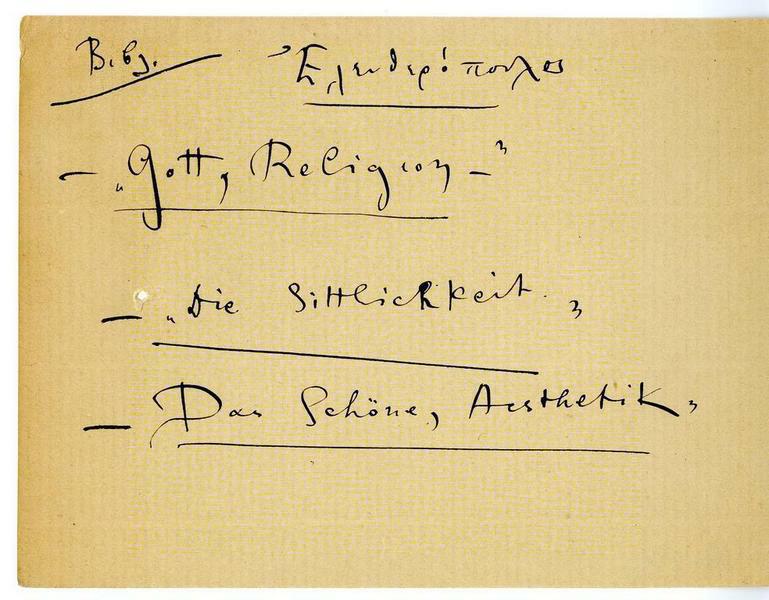 Βιβλ. Ἐλευθερόπουλος
— „Gott, Religion —”
— „Die Sittlichkeit”
— Das Schöne, Aesthetik”